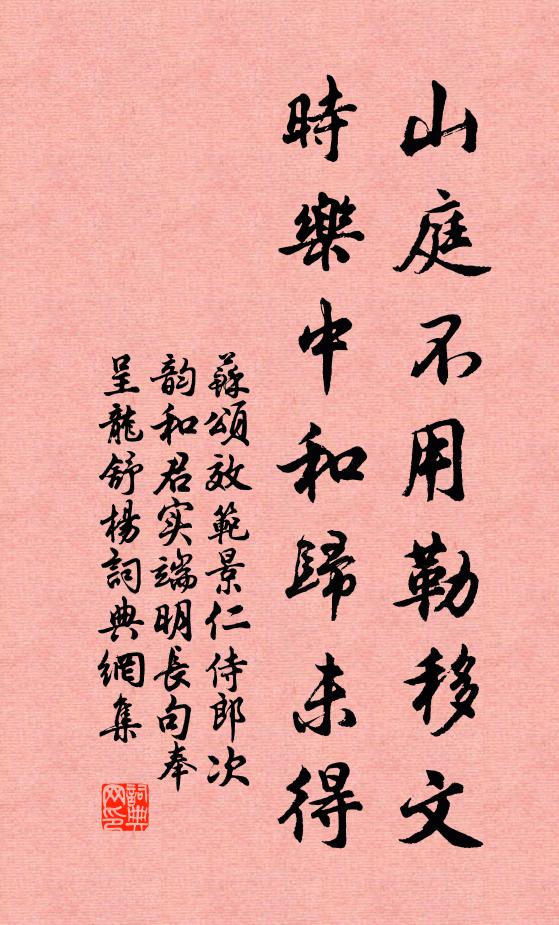 山庭不用勒移文
時樂中和歸未得
蘇頌效範景仁侍郎次
韵和君实端明長句奉
呈龍舒楊詞典網集
詞典
网印